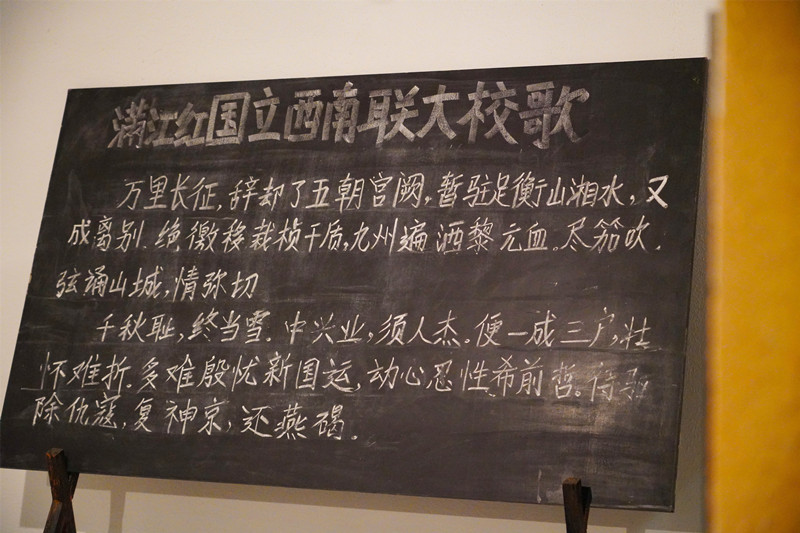 满江红国立西南联大校歌
万里长征,辞却了五朝宫阙,暂驻足衡山湘水,又
成离别.绝徼移栽桢干质,九州遍洒黎元血.尽笳吹.
弦诵山城,情弥切
千秋耻,终当雪.中兴业,须人杰.便一成三户,壮
怀难折.多难殷忧新国运,动心忍性希前哲.待驱
除仇寇,复神京,还燕碣.